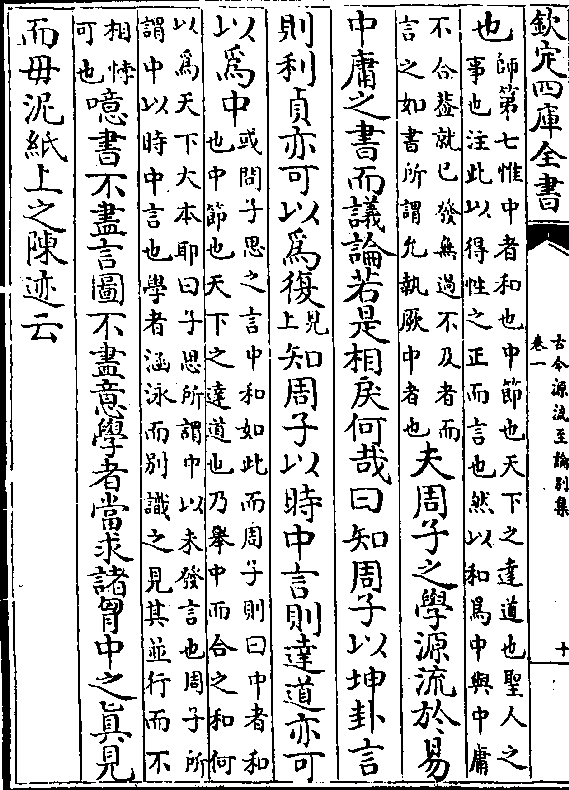 欽定四庫全書
古今源流至論別集
卷一
十
也師第七惟中者和也中節也天下之達道也聖人之
事也注此以得性之正而言也然以和爲中與中庸
不合蓋就已發無過不及者而
言之如書所謂允執厥中者也夫周子之學源流於易
中庸之書而議論若是相戾何哉曰知周子以坤卦言
則利貞亦可以爲復見上知周子以時中言則達道亦可
以爲中或問子思之言中和如此而周子則曰中者和
也中節也天下之達道也乃舉中而合之和何
以爲天下大本耶曰子思所謂中以未發言也周子所
謂中以時中言也學者涵泳而别識之見其並行而不
相悖
可也噫書不盡言圖不盡意學者當求諸胷中之真見
而毋泥紙上之陳迹云